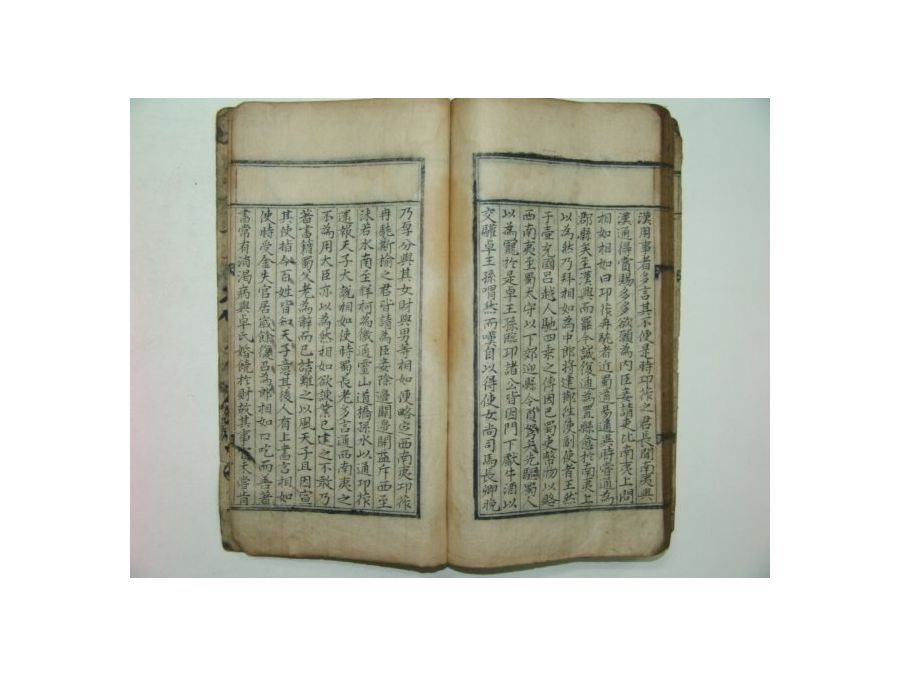 漢用事者多言其不便是時邛筰之君長聞南夷與
漢通得賞賜多多欲願為內臣妾請吏比南夷上問
相如相如曰邛筰冉駹者近蜀道易通異時嘗通為
郡縣矣至漢興而罷今誠復通為置縣愈於南夷上
以為然乃拜相如為中郎將建節往使副使者王然
于壺充國呂越人馳四乘之傳因巴蜀吏幣物以略
西南夷至蜀太守以下郊迎縣令負弩矢先驅蜀人
以為寵於是卓王孫臨邛諸公皆因門下獻牛酒以
交驩卓王孫喟然而嘆自以得使女尚司馬長卿晚
乃厚分與其女財與男等相如便略定西南夷邛筰
冉駹斯榆之君皆請為臣妾除邊關邊關益斥西至
沫若水南至牂柯為徼通靈山道橋孫水以通邛筰
還報天子大說相如使時蜀長老多言通西南夷之
不為用大臣亦以為然相如欲諫業已建之不敢乃
著書籍蜀父老為辭而己詰難之以風天子且因宣
其使指令百姓皆知天子意其後人有上書言相如
使時受金失官居歲餘復召為郎相如口吃而善著
書常有消渴病與卓氏婚饒於財故其事未嘗肯